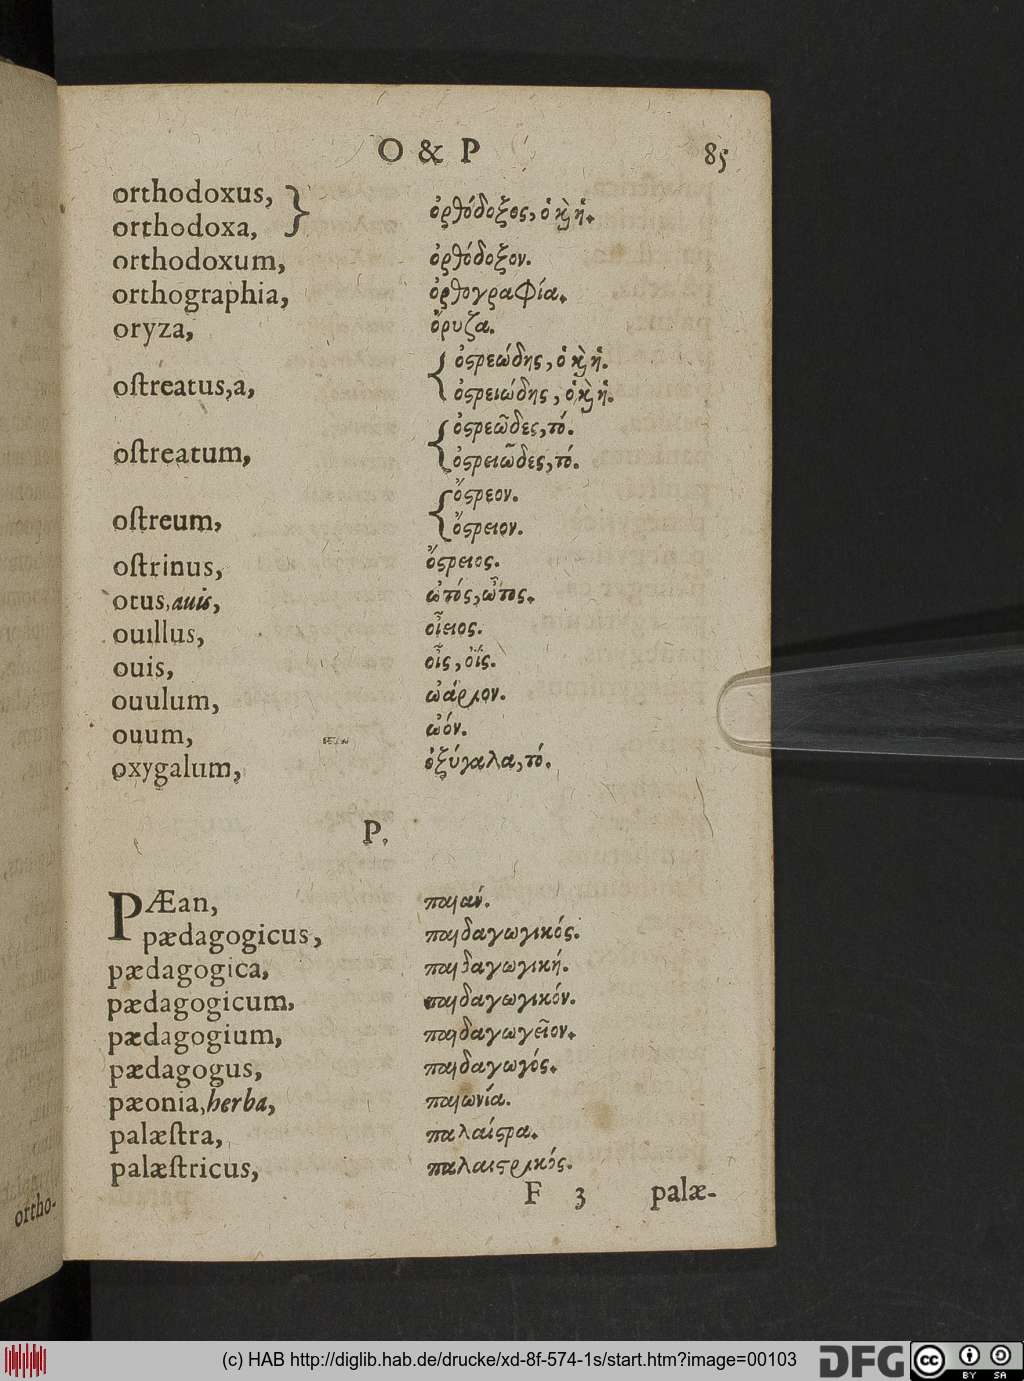 O & P 85
orthodoxus,
orthodoxa, } ὀρθόδοξος, ὁ κ̀ ἡ.
orthodoxum, ὀρθόδοξον.
orthographia, ὀρθογραφία.
oryza, ὄρυζα.
oſtreatus,a, { ὀϛρεώδης, ὁ κ̀ ἡ.
ὀϛρειώδης, ὁ κ̀ ἡ.
oſtreatum, { ὀϛρεῶδες, τό.
ὀϛρειῶδες, τό.
oſtreum, { ὄϛρεον.
ὄϛρειον.
oſtrinus, ὄϛρειος.
otus, auis, ὠτός, ὦτος.
ouillus, οἴειος.
ouis, οἶς, ὄϊς.
ouulum, ὠάριον.
ouum, ὠόν.
oxygalum, ὀξύγαλα, τό.
P.
PÆan, παιάν.
pædagogicus, παιδαγωγικός.
pædagogica, παιδαγωγική.
pædagogicum, παιδαγωγικόν.
pædagogium, παιδαγωγεῖον.
pædagogus, παιδαγωγός.
pæonia, herba, παιωνία.
palæſtra, παλαίϛρα.
palæſtricus, παλαιϛρικός.
F 3 palæ-
ortho-
(c) HAB http://diglib.hab.de/drucke/xd-8f-574-1s/start.htm?image=00103
DFG cc BY SA